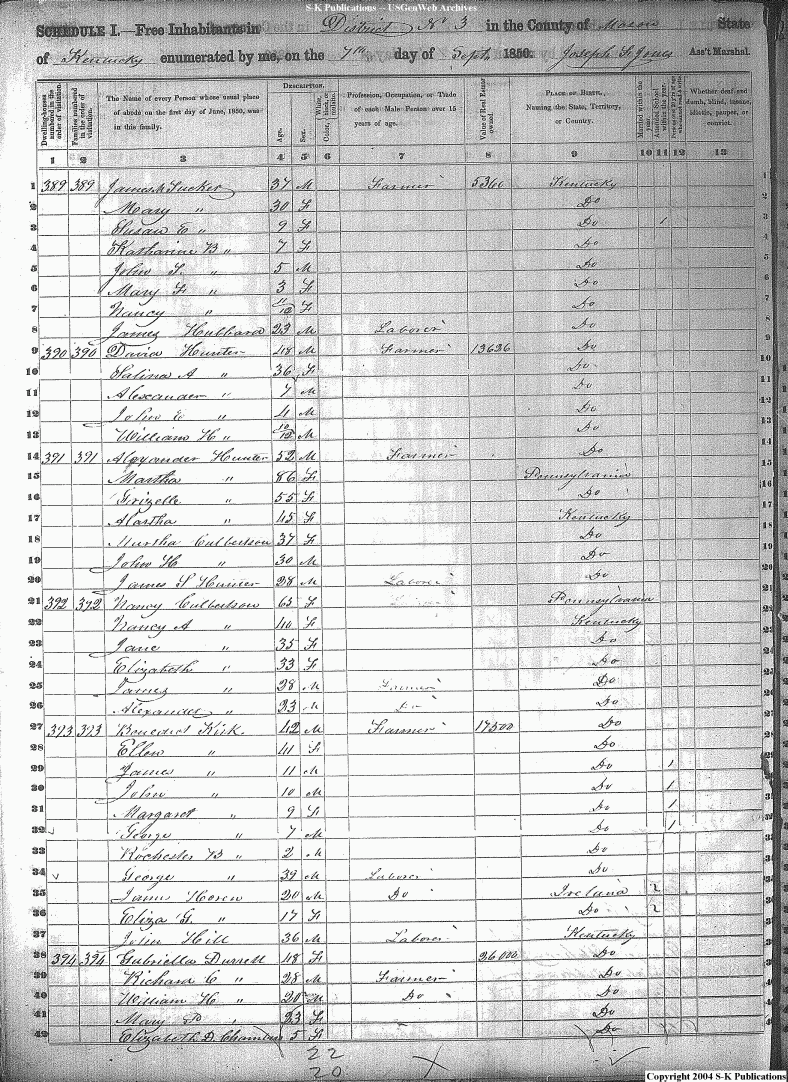 S-K Publications -- USGenWeb Archives
SCHEDULE I.—Free Inhabitants in District No 3 in the County of Mason State
of Kentucky enumerated by me, on the 7th day of Sept. 1850. Joseph S. Jones Ass't Marshal.
Dwelling-houses numbered in the order of visitation. Families numbered in the order of visitation. The Name of every Person whose usual place of abode on the first day of June, 1850, was in this family. DESCRIPTION. Age. Sex. Profession, Occupation, or Trade of each Male Person over 15 years of age. Value of Real Estate owned. PLACE OF BIRTH, Naming the State, Territory, or Country. Married within the year. Attended School within the year. Whether deaf and dumb, blind, insane, idiotic, pauper, or convict.
1 2 3 4 5 6 7 8 9 10 11 12 13
1 389 389 Tucker 37 M Farmer Kentucky 1
2 Mary " 30 F Do 2
3 Susan E " 9 F Do 1 3
4 Katharine B " 7 F Do 4
5 John S. " 5 M Do 5
6 Mary F " 3 F Do 6
7 Nancy " 11/12 F Do 7
8 James Hubbard 23 M Laborer Do 8
9 390 390 David Hunter 48 M Farmer 13636 Do 9
10 Salina A " 36 F Do 10
11 Alexander " 7 M Do 11
12 John E " 4 M Do 12
13 William H " 10/12 M Do 13
14 391 391 Alexander Hunter 52 M Farmer Do 14
15 Martha " 86 F Pennsylvania 15
16 Grizelle " 55 F Do 16
17 Martha " 45 F Kentucky 17
18 Martha Culbertson 37 F Do 18
19 John H " 30 M Do 19
20 James S Hunter 28 M Laborer Do 20
21 392 392 Nancy Culbertson 65 F Pennsylvania 21
22 Nancy A " 40 F Kentucky 22
23 Jane " 35 F Do 23
24 Elizabeth " 33 F Do 24
25 James " 28 M Farmer Do 25
26 Alexander " 23 M Do Do 26
27 393 393 Benedict Kirk 42 M Farmer 17500 Do 27
28 Ellen " 41 F Do 28
29 James " 11 M Do 1 29
30 John " 10 M Do 1 30
31 Margaret " 9 F Do 1 31
32 George " 7 M Do 1 32
33 Rochester B " 2 M Do 33
34 George " 39 M Laborer Do 34
35 James 20 M Do Ireland 35
36 Eliza G. " 17 F Do 36
37 John Hill 36 M Laborer Kentucky 37
38 394 394 Gabriella Durrett 48 F 26000 Do 38
39 Richard C " 28 M Farmer Do 39
40 William H " 20 M Do Do 40
41 Mary " 23 F Do 41
42 Elizabeth D. Chambers 5 F Do 42
22
20
Copyright 2004 S-K Publications